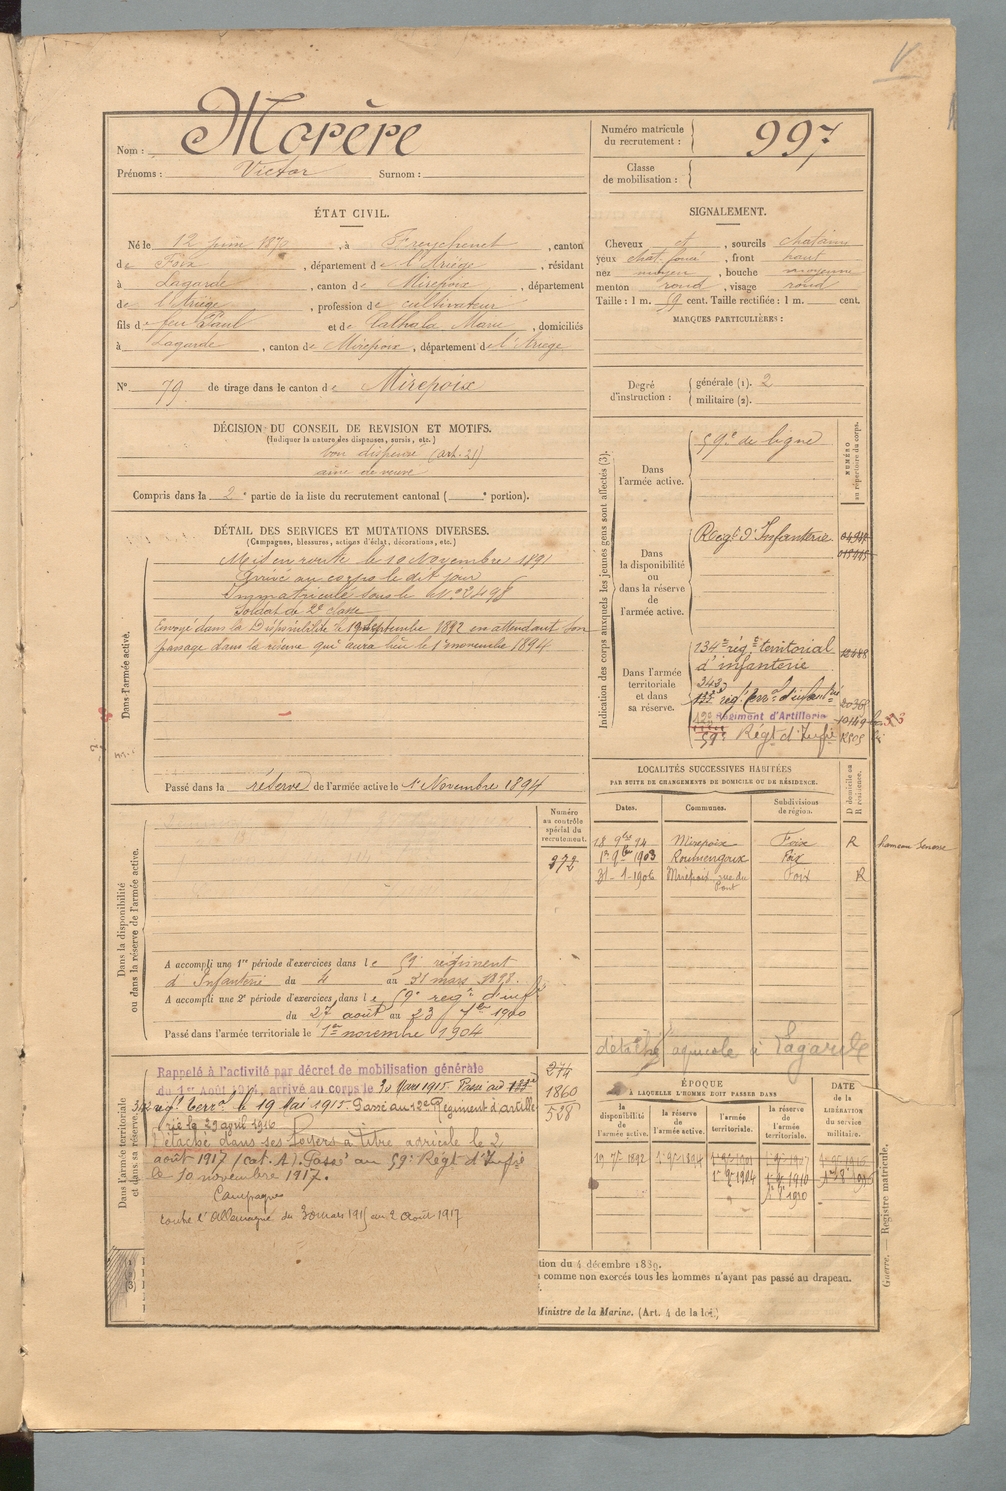 Nom : Morère
Prénoms : Victor Surnom :
Numéro matricule du recrutement : 997
Classe de mobilisation :
ÉTAT CIVIL.
Né le 12 juin 1870, à Freychenet, canton
de Foix, département de l'Ariège, résidant
à Lagarde, canton de Mirepoix, département
de l'Ariège, profession de cultivateur
fils de feu Paul et de Cathala Marie, domiciliés
à Lagarde, canton de Mirepoix, département de l'Ariège
N° 79 de tirage dans le canton de Mirepoix
DÉCISION DU CONSEIL DE REVISION ET MOTIFS.
(Indiquer la nature des dispenses, sursis, etc.)
bon dispensé (art. 21)
aîné de veuve
Compris dans la 2e partie de la liste du recrutement cantonal ( e portion).
SIGNALEMENT.
Cheveux et, sourcils chatains
yeux chat. foncé, front haut
nez moyen, bouche moyenne
menton rond, visage rond
Taille : 1 m. 59 cent. Taille rectifiée : 1 m. cent.
MARQUES PARTICULIÈRES :
Degré d'instruction : générale (1). 2
militaire (2).
DÉTAIL DES SERVICES ET MUTATIONS DIVERSES.
(Campagnes, blessures, actions d'éclat, décorations, etc.)
Dans l'armée active.
Mis en route le 10 Novembre 1891
Arrivé au corps le dit jour
Immatriculé sous le N° 2498
Soldat de 2e classe
Envoyé dans la Disponibilité le 19 septembre 1892 en attendant son
passage dans la réserve qui aura lieu le 1er novembre 1894
Passé dans la réserve de l'armée active le 1er Novembre 1894
Indication des corps auxquels les jeunes gens sont affectés (3).
NUMÉRO au répertoire du corps.
Dans l'armée active.
59e de ligne
Dans la disponibilité ou dans la réserve de l'armée active.
Régt d'Infanterie
Dans l'armée territoriale et dans sa réserve.
134e rég. territorial
d'infanterie
12488
régt terral d'infanterie
Régiment d'Artillerie
59e Régt d'Infie
LOCALITÉS SUCCESSIVES HABITÉES
PAR SUITE DE CHANGEMENTS DE DOMICILE OU DE RÉSIDENCE.
Dates. Communes. Subdivisions de région. D domicile ou R résidence.
18 9bre 94 Mirepoix Foix R
1903 Roumengoux Foix
31-1-1906 Mirepoix rue du Pont Foix R
détaché agricole à Lagarde
Dans la disponibilité ou dans la réserve de l'armée active.
Numéro au contrôle spécial du recrutement.
972
A accompli une 1re période d'exercices dans le 59e régiment
d'Infanterie du 4 au 31 mars 1898.
A accompli une 2e période d'exercices dans le 59e régt d'infie
du 27 août au 23 7bre 1900
Passé dans l'armée territoriale le 1er novembre 1904
Dans l'armée territoriale et dans sa réserve.
Rappelé à l'activité par décret de mobilisation générale
du 1er Août 1914, arrivé au corps le 30 Mars 1915. Passé au
régt Terral le 19 Mai 1915. Passé au 12e Régiment d'artille-
rie le 29 avril 1916
Détaché dans ses foyers à titre agricole le 2
août 1917 (cat. A). Passé au 59e Régt d'Infie
le 10 novembre 1917.
Campagnes
contre l'Allemagne du 30 mars 1915 au 2 Août 1917
274
1860
538
ÉPOQUE
À LAQUELLE L'HOMME DOIT PASSER DANS
la disponibilité de l'armée active. la réserve de l'armée active. l'armée territoriale. la réserve de l'armée territoriale.
DATE de la LIBÉRATION du service militaire.
19 7bre 1892 1er 9bre 1894
1er 9bre 1904 1er 9bre 1910
tion du 4 décembre 1889.
comme non exercés tous les hommes n'ayant pas passé au drapeau.
Ministre de la Marine. (Art. 4 de la loi.)
Guerre. — Registre matricule.